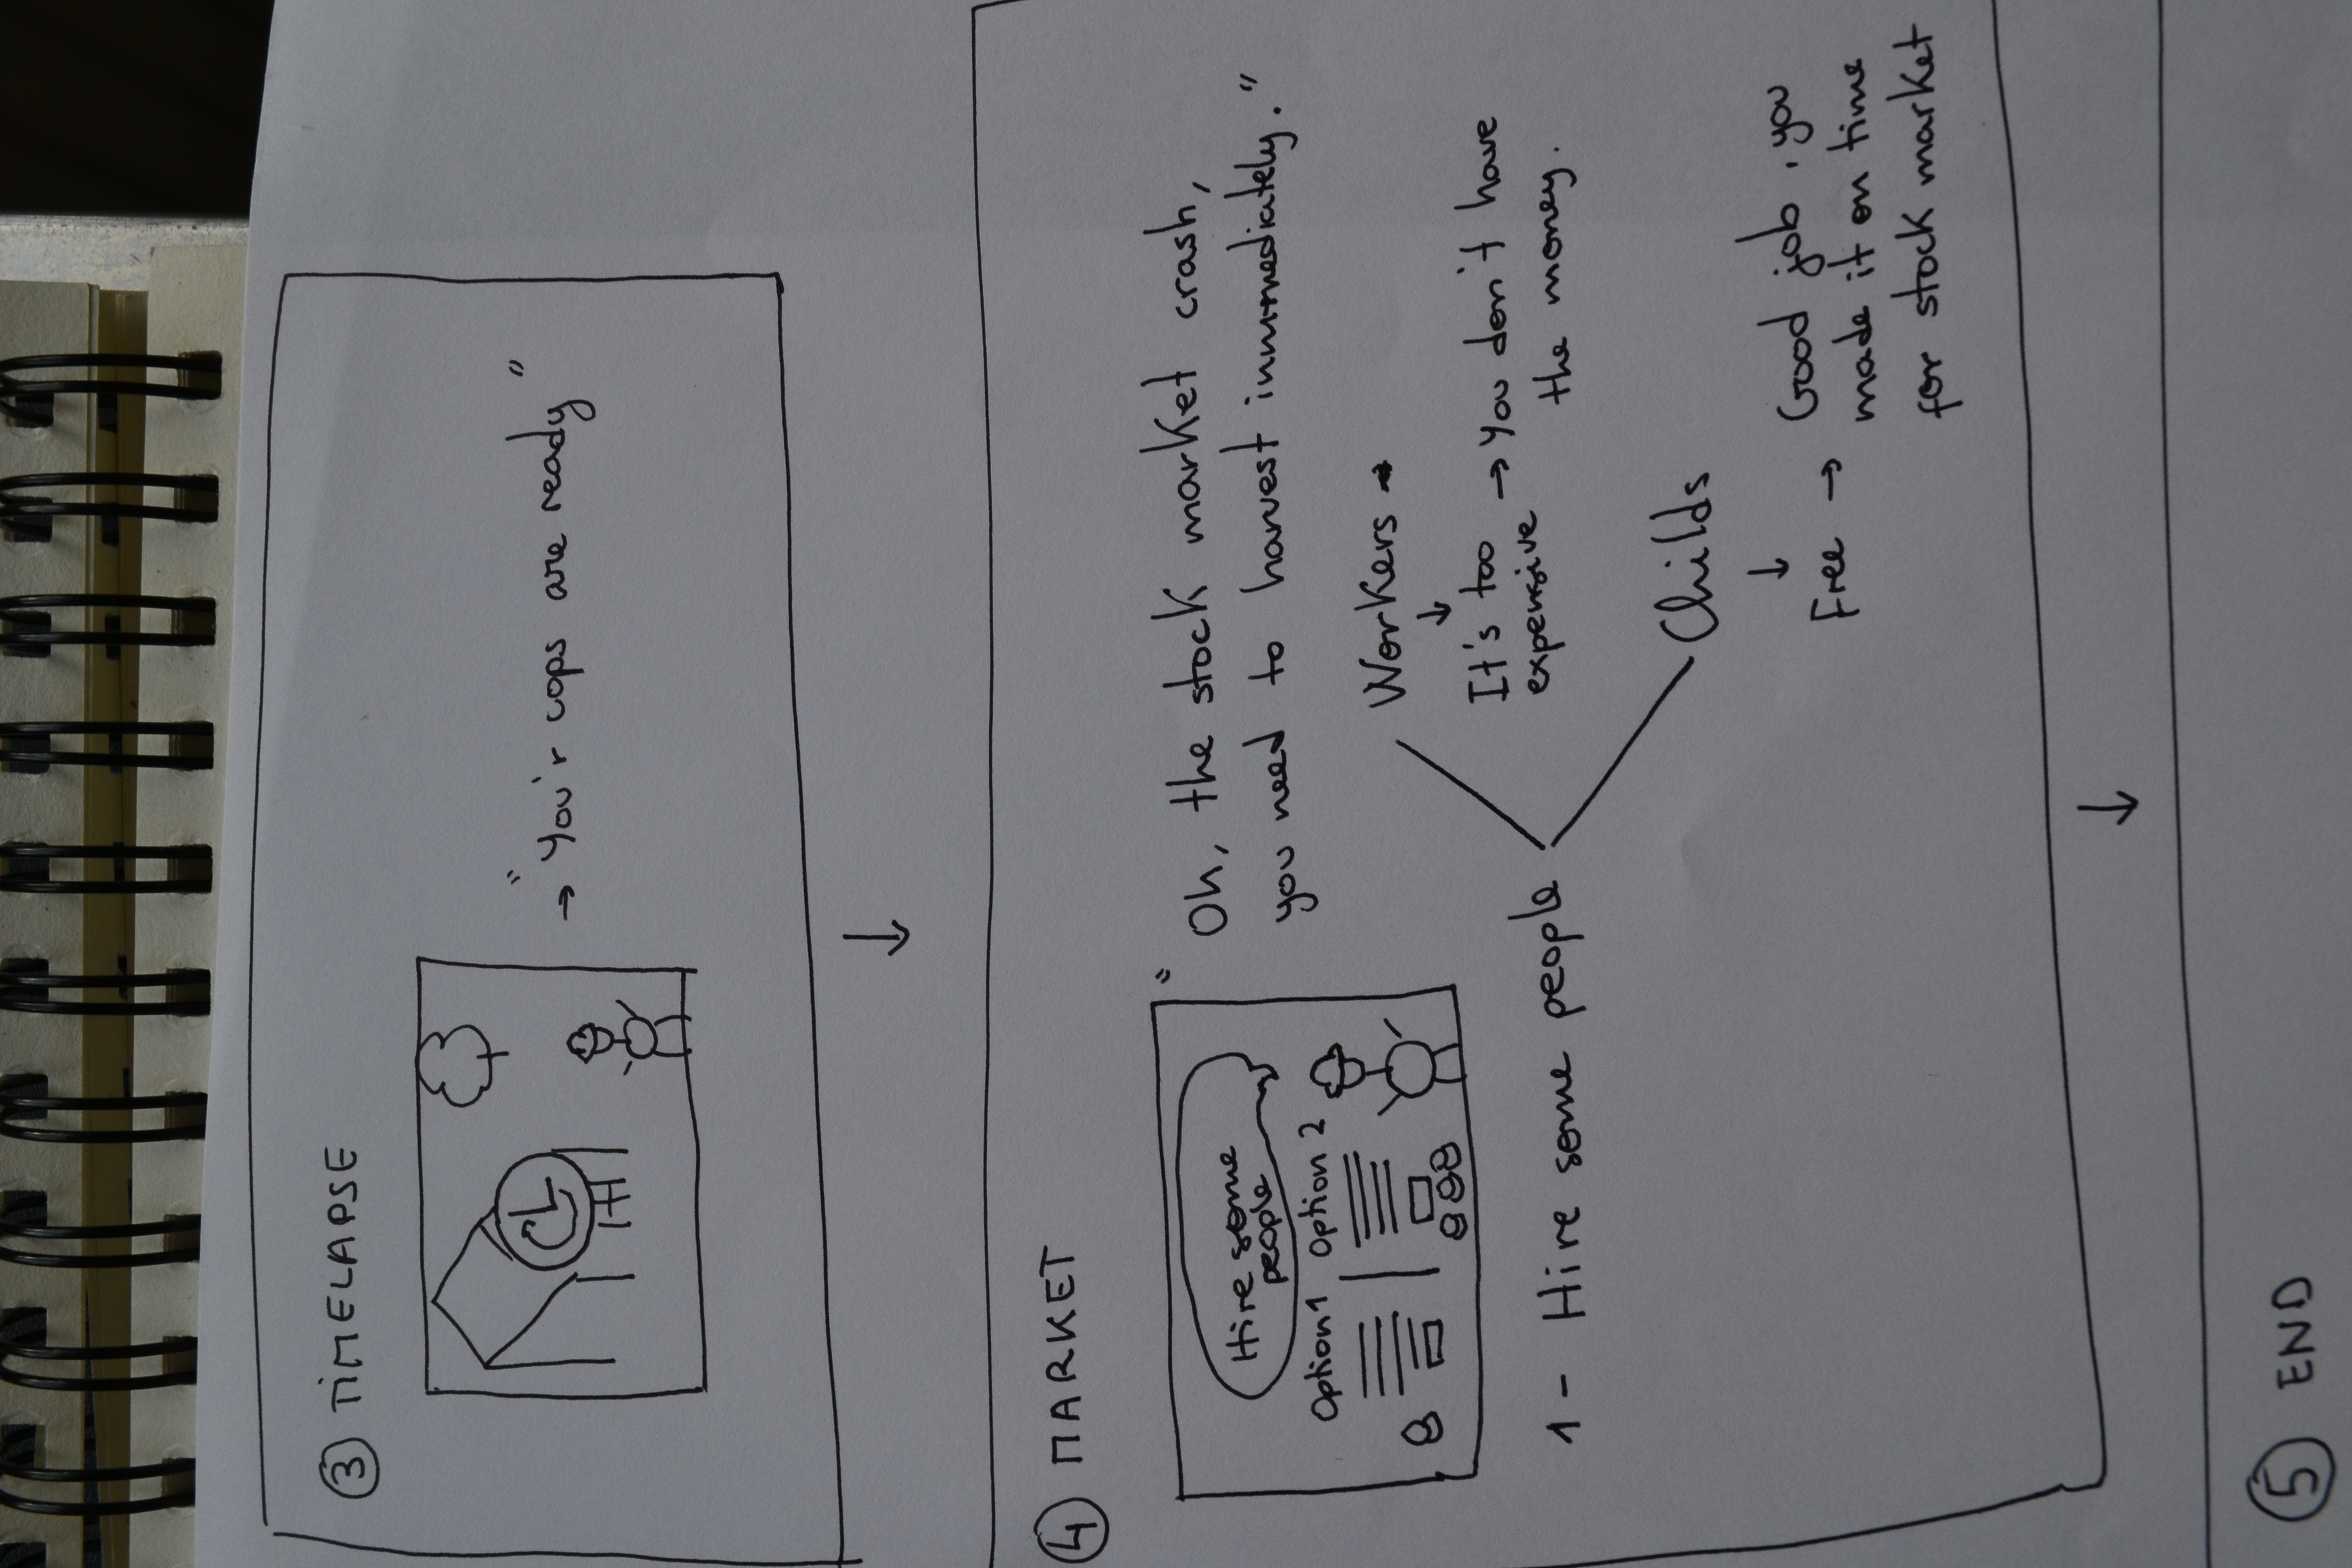 ③ TIMELAPSE
→ "You'r cops are ready"
④ MARKET
Hire some
people
Option 1 Option 2
"Oh, the stock market crash,
you need to harvest inmmediately."
1- Hire some people
Workers
↓
It's too → you don't have
expensive the money.
Childs
↓
Free → Good job, you
made it on time
for stock market
⑤ END